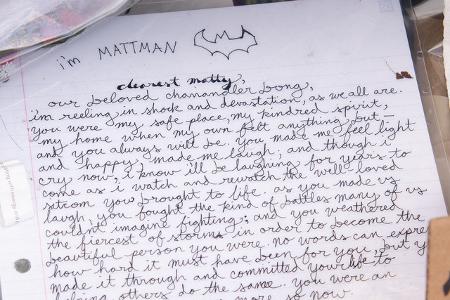 i'm MATTMAN
dearest matty,
our beloved chanandler bong,
i'm reeling in shock and devastation, as we all are.
you were my safe place, my kindred spirit,
my home when my own felt anything but -
and you always will be. you made me feel light
and happy, made me laugh, and though i
cry now, i know i'll be laughing for years to
come as i watch and rewatch the well-loved
sitcom you brought to life. as you made us
laugh, you fought the kind of battles many of us
couldn't imagine fighting; and you weathered
the fiercest of storms in order to become the
beautiful person you were. no words can expre
how hard it must have been for you, but y
made it through and committed your life to
helping others do the same. you were an
more so now